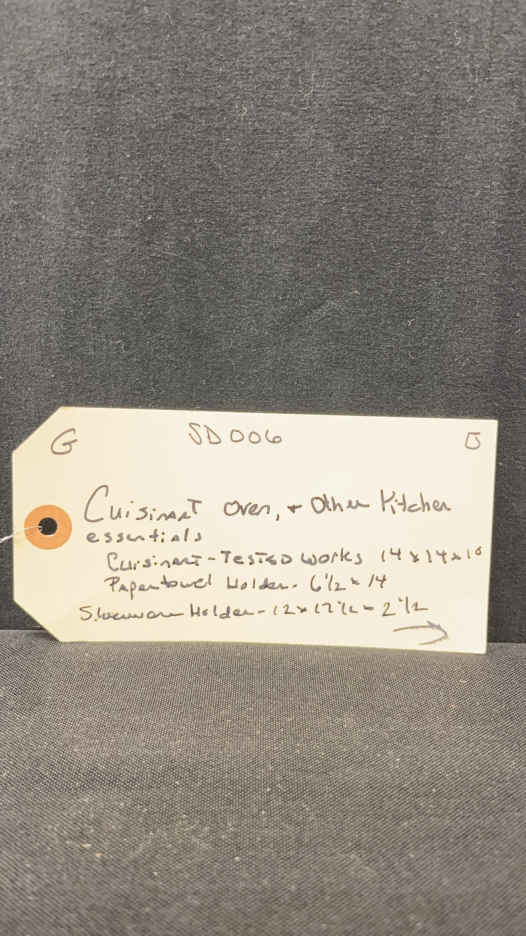 G SD006 B
Cuisinart oven, + Other Kitchen
essentials
Cuisinart - Tested works 14 x 14 x 10
Papertowel Holder - 6 1/2 x 14
Silverware Holder - 12 x 17 1/2 x 2 1/2